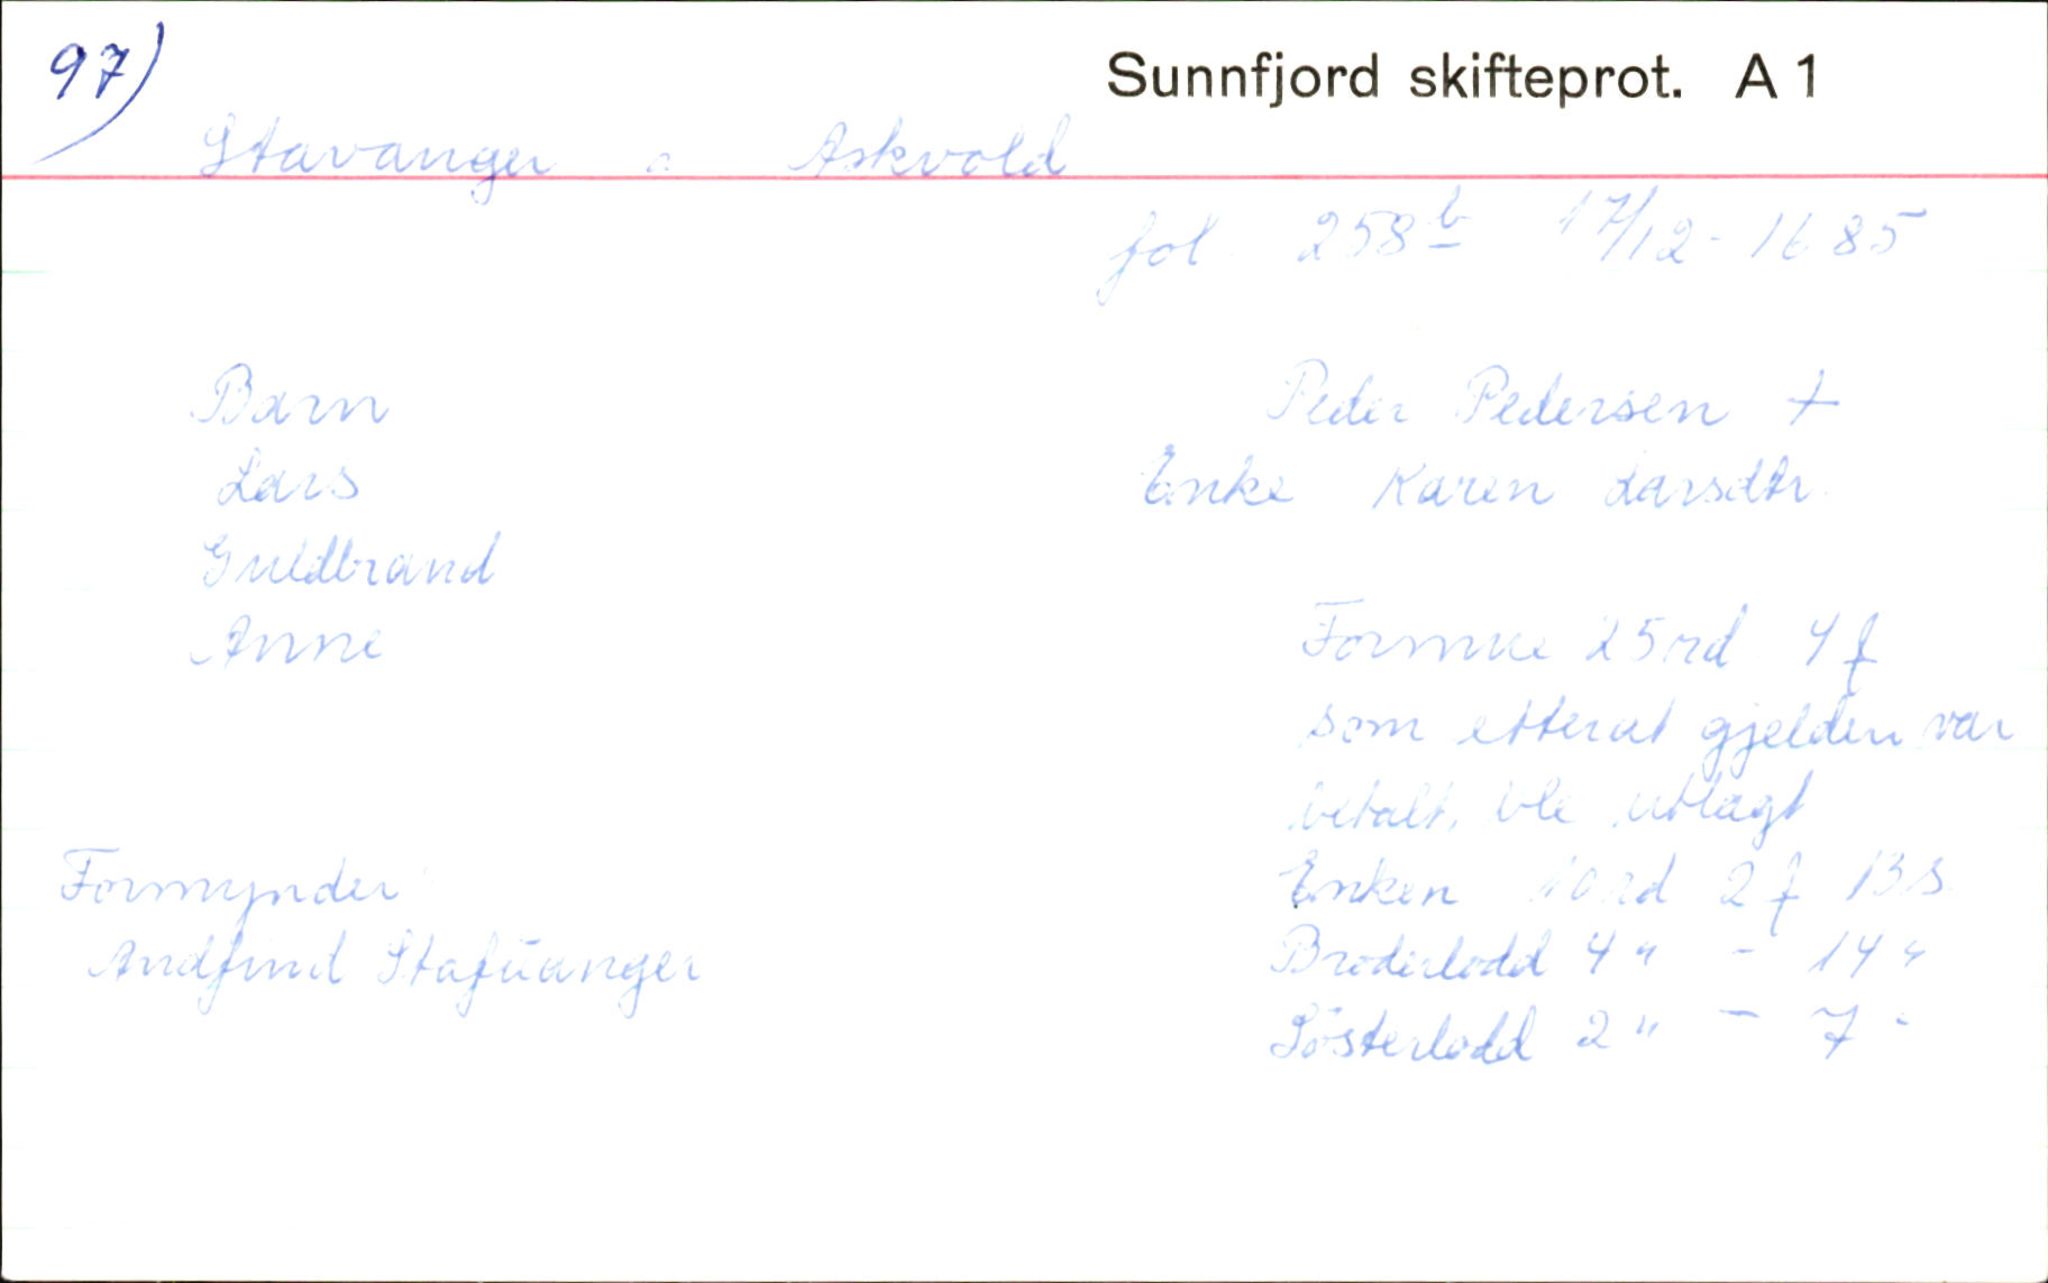 97)
Sunnfjord skifteprot. A 1
Stavanger Askvold
fol. 258 b 17/12-1685
Barn
Lars
Guldbrand
Anne
Peder Pedersen +
Enke Karen Larsdtr.
Formue 25 rd 4 f
som etterat gjelden var
betalt, ble utlagt
Enken 10 rd 2 f 13 s
Broderlodd 4 " - 14 "
Søsterlodd 2 " - 7 "
Formynder
Andfind Stafüanger